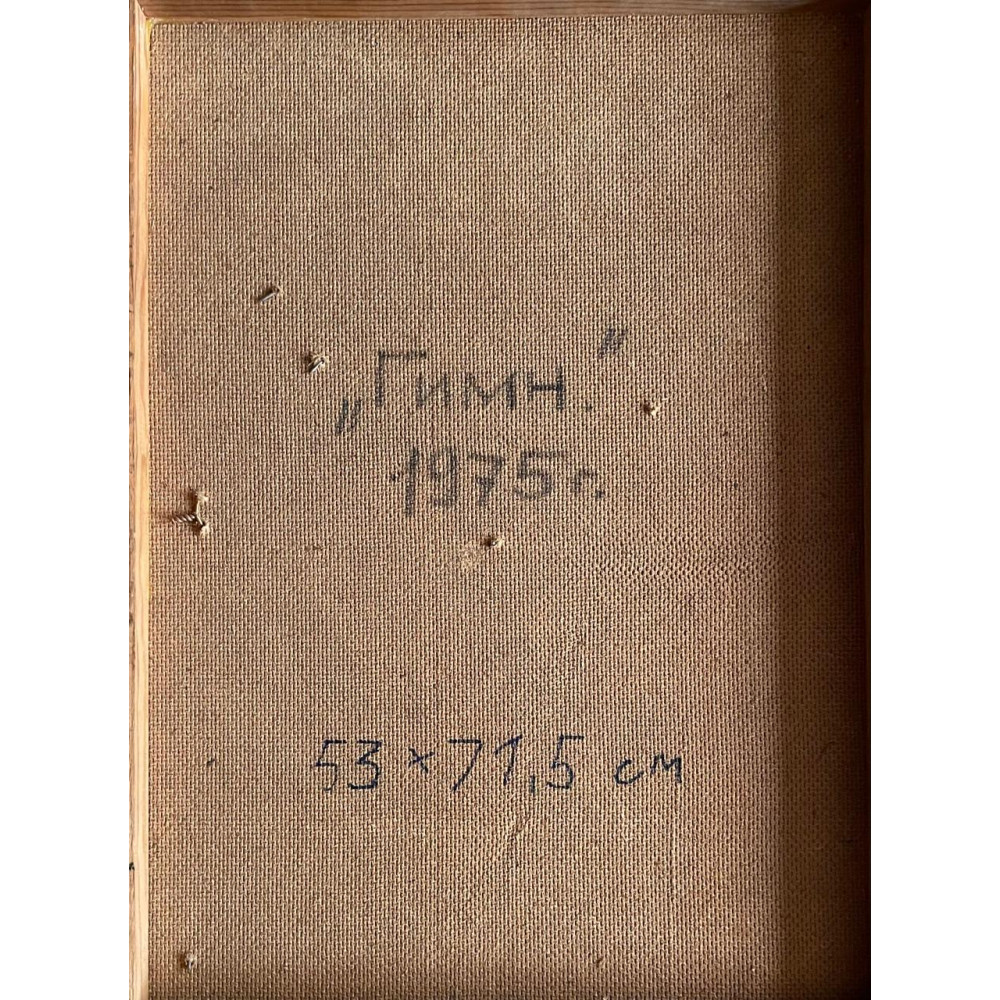 „Гимн.”
1975г.
53×71,5 см